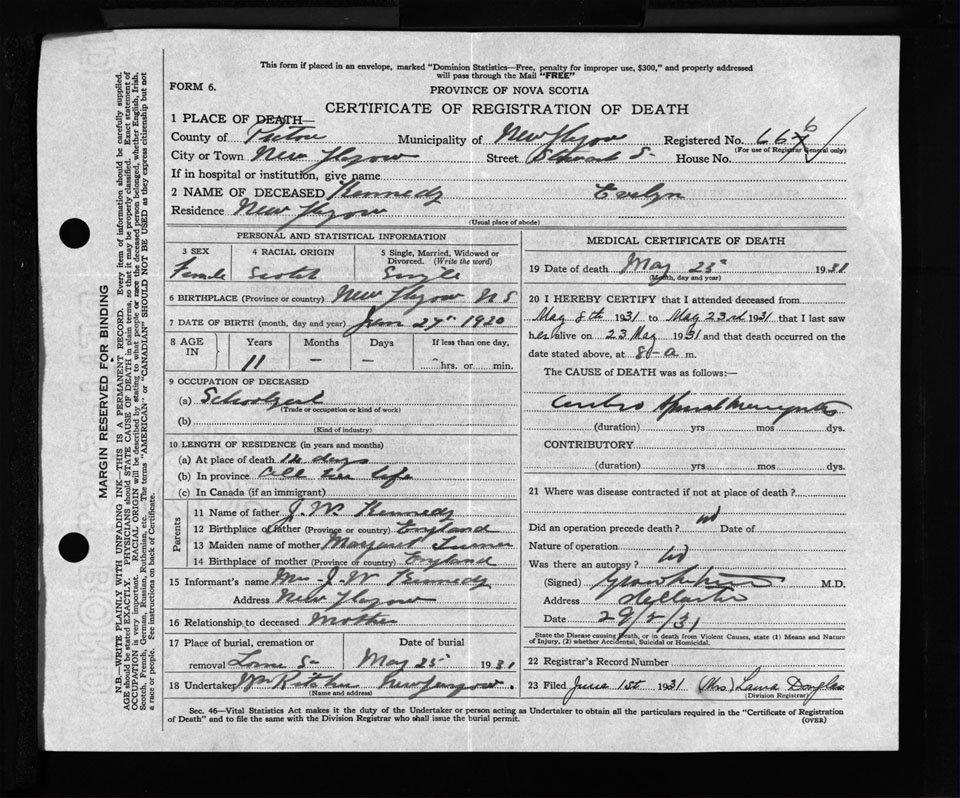 This form if placed in an envelope, marked "Dominion Statistics—Free, penalty for improper use, $300," and properly addressed
will pass through the Mail "FREE"
FORM 6.
PROVINCE OF NOVA SCOTIA
CERTIFICATE OF REGISTRATION OF DEATH
1 PLACE OF DEATH—
County of Pictou Municipality of New Glasgow Registered No. 66
(For use of Registrar General only)
City or Town New Glasgow Street Stewart S. House No.
If in hospital or institution, give name
2 NAME OF DECEASED Kennedy Evelyn
Residence New Glasgow
(Usual place of abode)
PERSONAL AND STATISTICAL INFORMATION
3 SEX Female
4 RACIAL ORIGIN Scotch
5 Single, Married, Widowed or Divorced. (Write the word) Single
6 BIRTHPLACE (Province or country) New Glasgow N S
7 DATE OF BIRTH (month, day and year) 27" 1920
8 AGE IN Years Months Days If less than one day,
11 — — hrs. or min.
9 OCCUPATION OF DECEASED
(a) Schoolgirl
(Trade or occupation or kind of work)
(b)
(Kind of industry)
10 LENGTH OF RESIDENCE (in years and months)
(a) At place of death 14 days
(b) In province all her life
(c) In Canada (if an immigrant)
Parents
11 Name of father J. W. Kennedy
12 Birthplace of father (Province or country) England
13 Maiden name of mother Margaret Turner
14 Birthplace of mother (Province or country) England
15 Informant's name Mrs J. W Kennedy
Address New Glasgow
16 Relationship to deceased Mother
17 Place of burial, cremation or Date of burial
removal Lorne S— May 25" 1931
18 Undertaker New Glasgow.
(Name and address)
MEDICAL CERTIFICATE OF DEATH
19 Date of death May 23" 1931
(Month, day and year)
20 I HEREBY CERTIFY that I attended deceased from
May 8th 1931 to May 23rd 1931 that I last saw
her alive on 23 May 1931 and that death occurred on the
date stated above, at 8-a m.
The CAUSE of DEATH was as follows:—
Cerebro Spinal Meningitis
(duration) yrs mos dys.
CONTRIBUTORY
(duration) yrs mos dys.
21 Where was disease contracted if not at place of death?
Did an operation precede death? no Date of
Nature of operation
Was there an autopsy? no
(Signed) M.D.
Address
Date 29/5/31
State the Disease causing Death, or in death from Violent Causes, state (1) Means and Nature
of Injury, (2) whether Accidental, Suicidal or Homicidal.
22 Registrar's Record Number
23 Filed June 1st 1931 (Mrs) Laura Douglas
(Division Registrar)
Sec. 46—Vital Statistics Act makes it the duty of the Undertaker or person acting as Undertaker to obtain all the particulars required in the "Certificate of Registration
of Death" and to file the same with the Division Registrar who shall issue the burial permit.
(OVER)
MARGIN RESERVED FOR BINDING
N.B.—WRITE PLAINLY WITH UNFADING INK—THIS IS A PERMANENT RECORD. Every item of information should be carefully supplied.
AGE should be stated EXACTLY. PHYSICIANS should STATE CAUSE OF DEATH in plain terms, so that it may be properly classified. Exact statement of
OCCUPATION is very important. RACIAL ORIGIN will be described by stating to what people or race the deceased person belonged, whether English, Irish,
Scotch, French, German, Russian, Ruthenian, etc. The terms "AMERICAN" or "CANADIAN" SHOULD NOT BE USED as they express citizenship but not
a race or people. See instructions on back of Certificate.